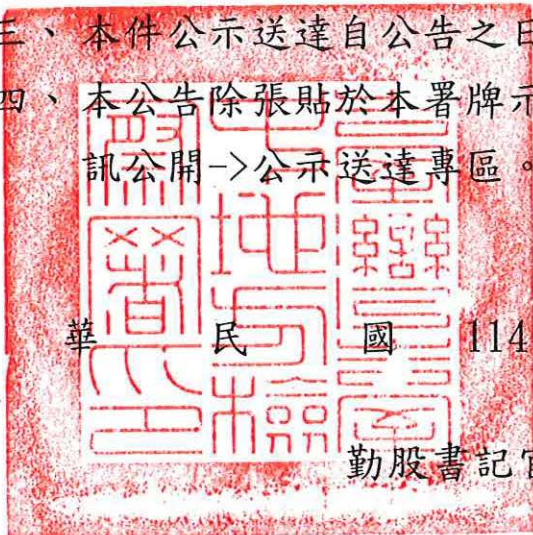 三、本件公示送達自公告之日
四、本公告除張貼於本署牌示
訊公開->公示送達專區。
華 民 國 114
勤股書記官